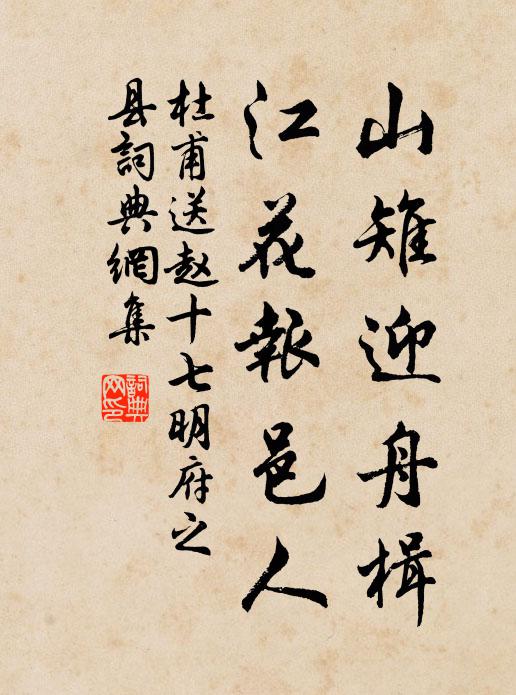 山雉迎舟楫
江花報邑人
杜甫送赵十七明府之
县詞典網集
詞典网印